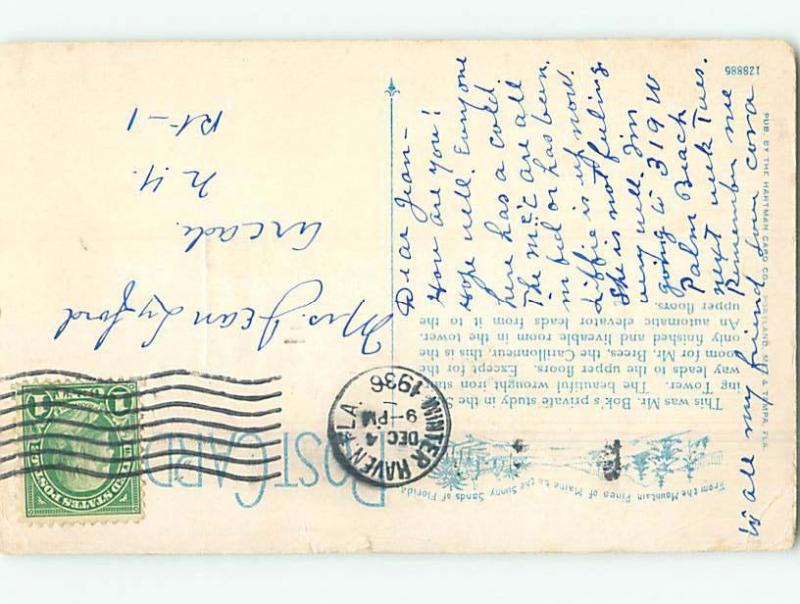 Dear Jean –
How are you!
Hope well. Everyone
here has a cold.
The Mc's are all
in bed or has been.
Liffie is up now.
She is not feeling
very well. Jim
going to 319 W
Palm Beach
next week Tues.
Remember me
to all my friend from Cora
Mrs. Jean Lyford
Arcade.
N.Y.
Rt-1
128885
PUB. BY THE HARTMAN CARD CO., PORTLAND, ME. & TAMPA, FLA.
From the Mountain Pines of Maine to the Sunny Sands of Florida
POST CARD
WINTER HAVEN, FLA.
DEC 4
9-PM
1936
This was Mr. Bok's private study in the
ing Tower. The beautiful wrought iron
way leads to the upper floors. Except for the
room for Mr. Brees, the Carillonneur, this is the
only finished and liveable room in the tower.
An automatic elevator leads from it to the
upper floors.